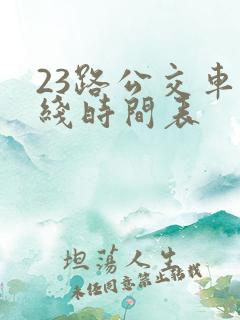 23路公交車
綫時間表
坦蕩人生
未经同意禁止转载